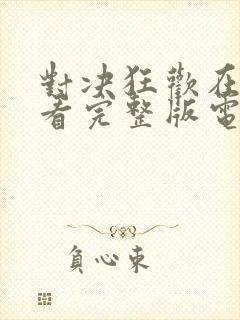 對决狂歡在
看完整版電
負心東